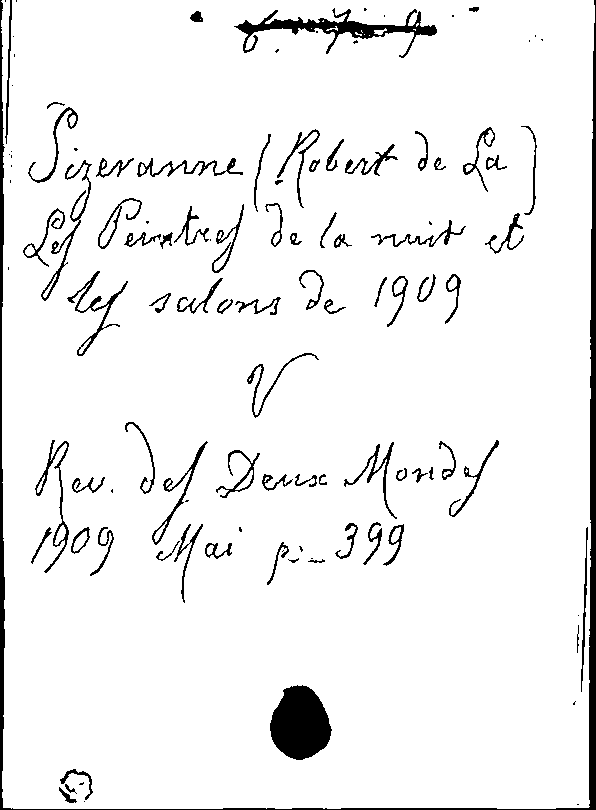 6. 7. 9
Sizeranne (Robert de La)
Les Peintres de la nuit et
les salons de 1909
V
Rev. des Deux Mondes
1909 Mai p. 399